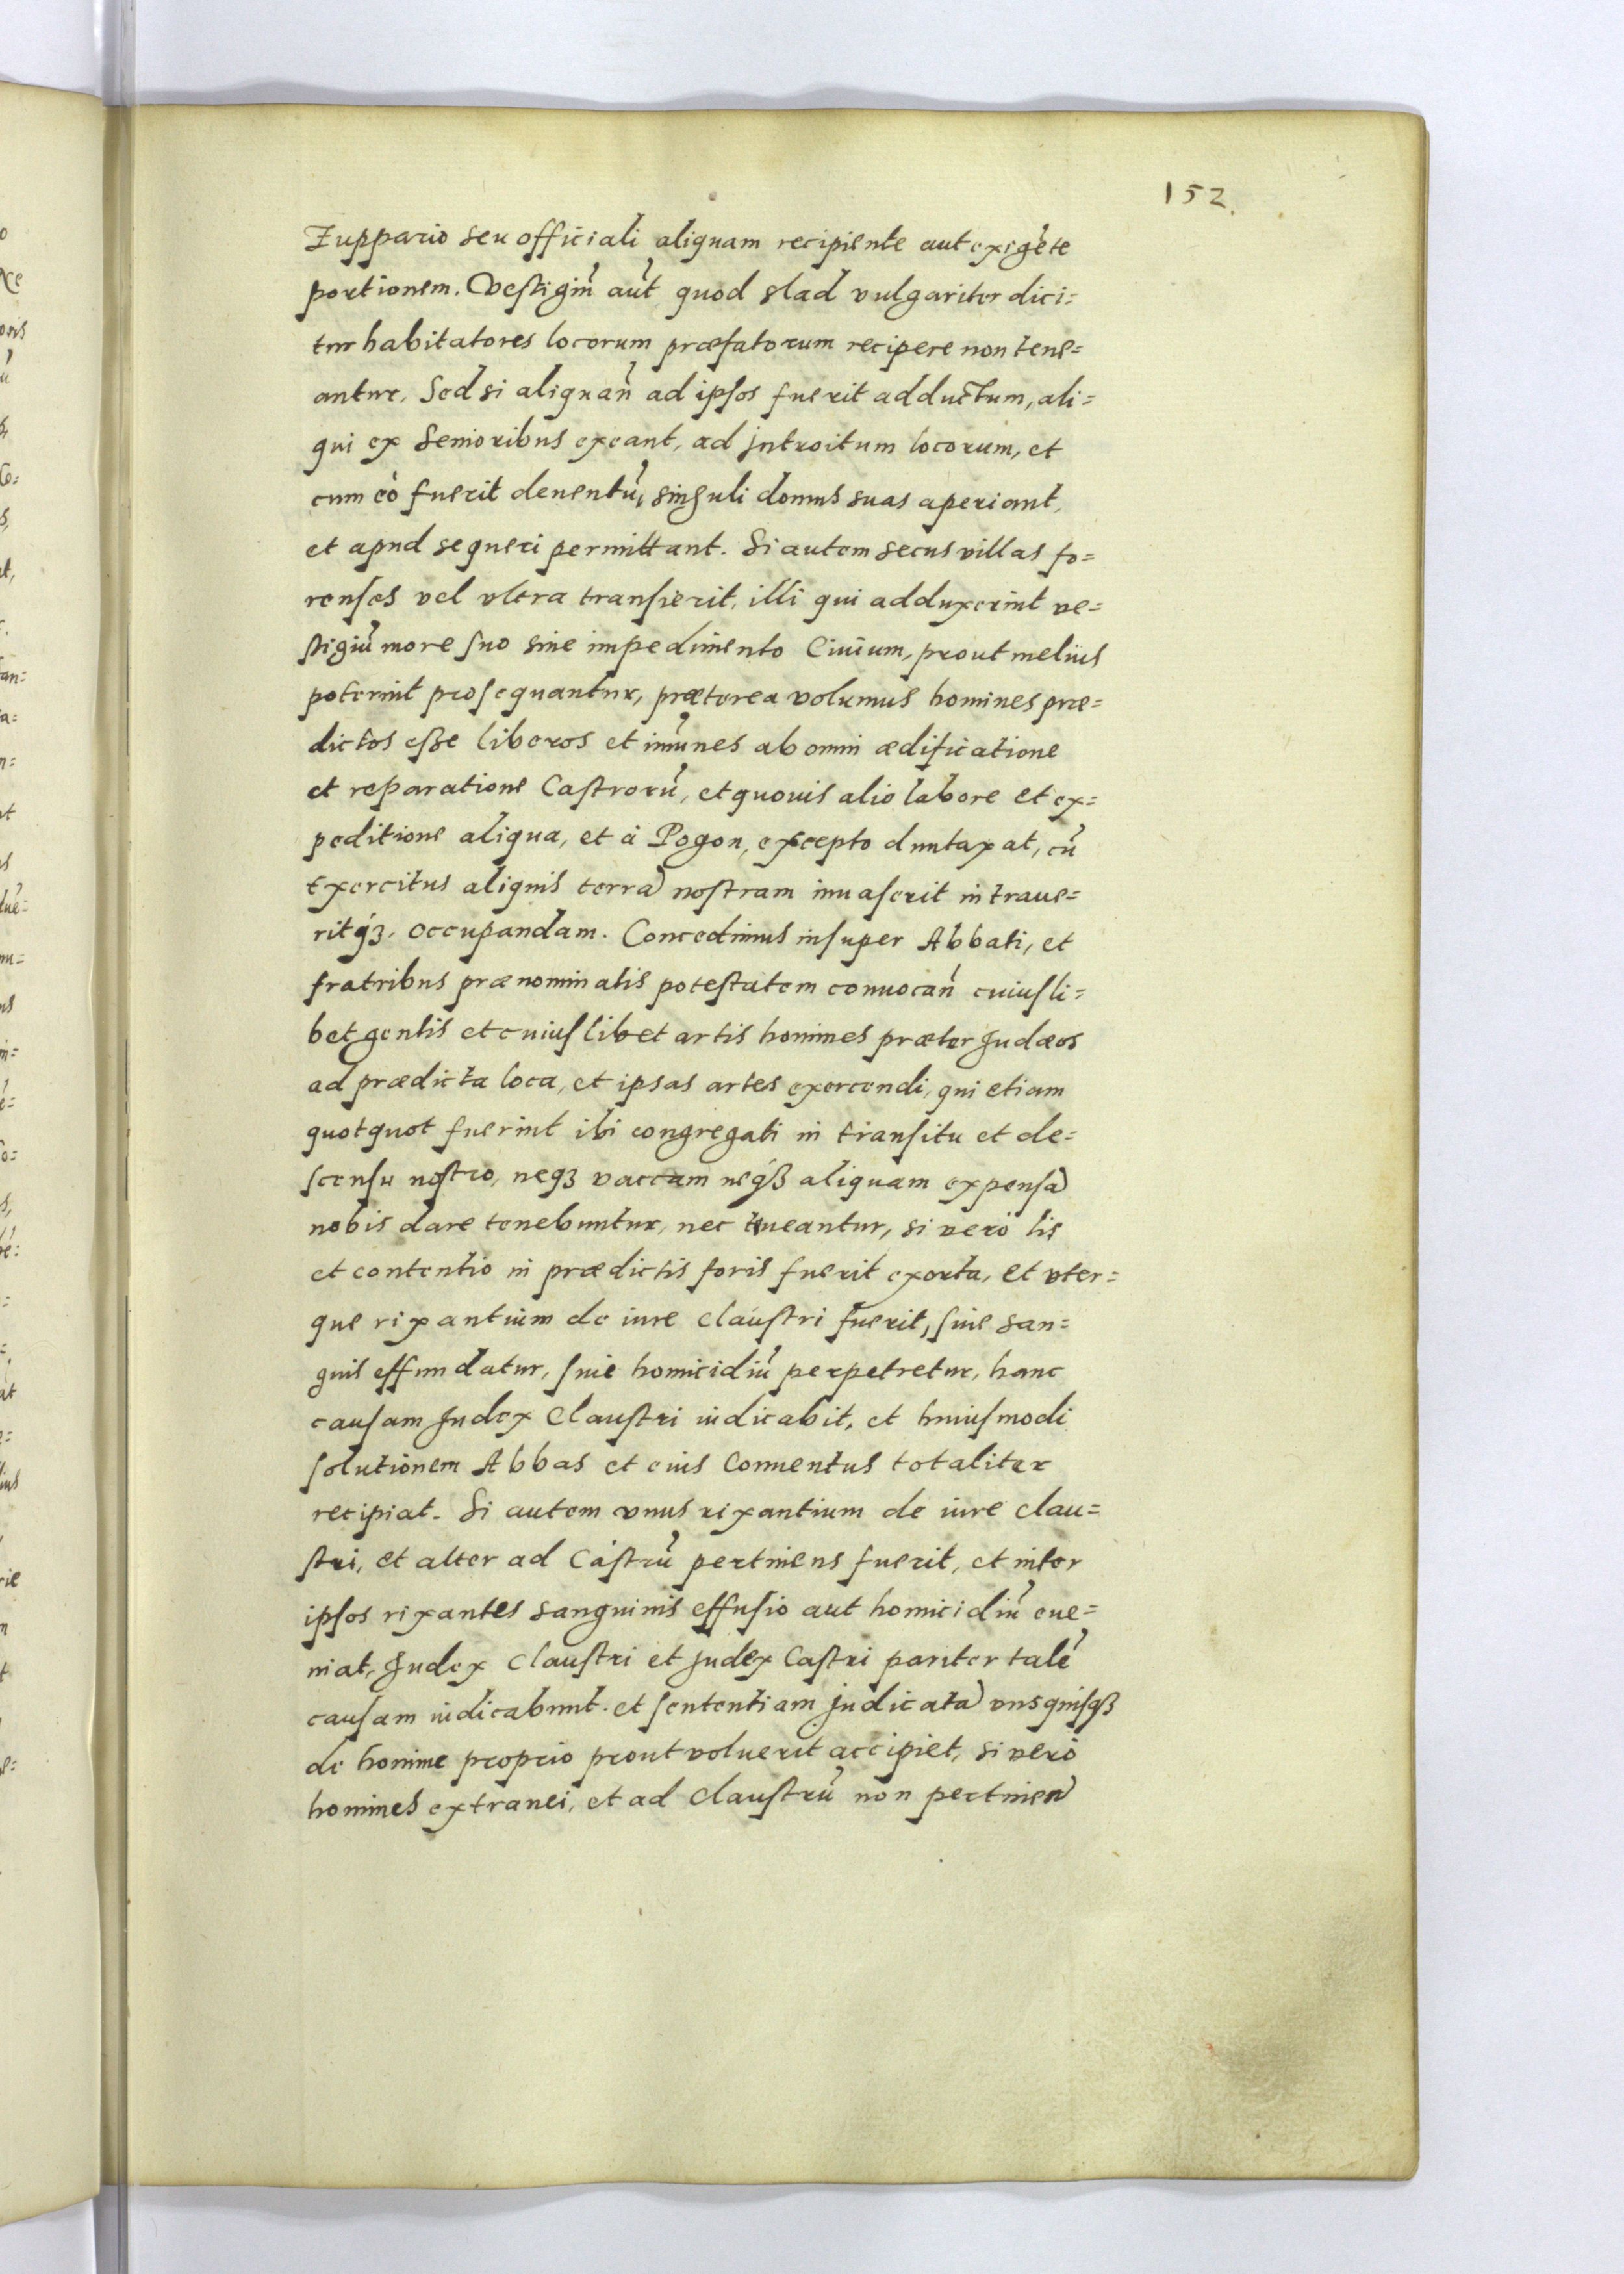 152.
Zuppario seu officiali aliquam recipiente aut exigẽte
portionem. Vestigiũ aũt quod slad vulgariter dici=
tur habitatores locorum præfatorum recipere non tene=
antur. Sed si aliquañ ad ipsos fuerit adductum, ali=
qui ex Senioribus exeant, ad jntroitum locorum, et
cum eò fuerit deuentũ, singuli domus suas aperiant,
et apud se queri permittant. Si autem secus villas fo=
renses vel vltra transierit, illi qui adduxerint ve=
stigiũ more suo sine impedimento Ciuium, prout melius
poterint prosequantur, præterea volumus homines præ=
dictos esse liberos et im̃unes ab omni ædificatione
et reparatione Castrorũ, et quouis alio labore et ex=
peditione aliqua, et à Pogon, excepto duntaxat, cũ
Exercitus aliquis terrã nostram inuaserit intraue=
ritq́ꝫ. occupandam. Concedimus insuper Abbati, et
fratribus prænominatis potestatem conuocañ cuiusli=
bet gentis et cuiuslibet artis homines præter Judæos
ad prædicta loca, et ipsas artes exercendi, qui etiam
quotquot fuerint ibi congregati in transitu et de=
scensu nostro, neqꝫ vaccam neq́ꝫ aliquam expensã
nobis dare tenebuntur, nec teneantur, si verò lis
et contentio in prædictis foris fuerit exorta, et vter=
que rixantium de iure Claustri fuerit, siue san=
guis effundatur, siue homicidiũ perpetretur, hanc
causam Judex Claustri iudicabit, et huiusmodi
solutionem Abbas et eius Conuentus totaliter
recipiat. Si autem vnus rixantium de iure Clau=
stri, et alter ad Castrũ pertinens fuerit, et inter
ipsos rixantes sanguinis effusio aut homicidiũ eue=
niat, Judex Claustri et Judex Castri pariter talẽ
causam iudicabunt. et sententiam judicatã vnsquisqꝫ
de homine proprio prout voluerit accipiet, si verò
homines extranei, et ad Claustrũ non pertineñ